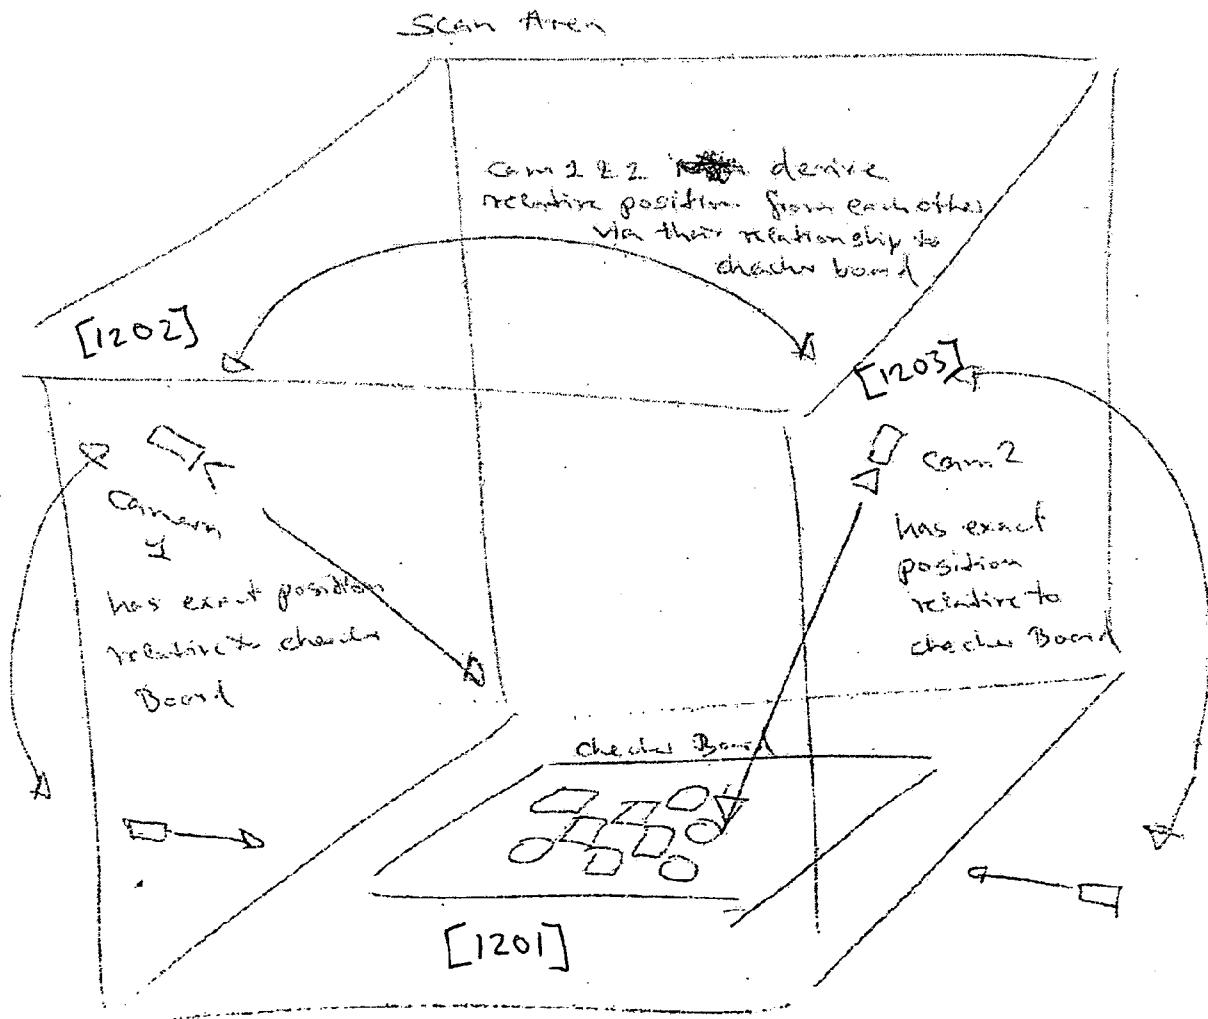 Scan Area
cam 1 & 2 derive
relative position from each other
via their relationship to
checker board
[1202]
[1203]
Camera
1
has exact position
relative to checker
Board
cam 2
has exact
position
relative to
checker Board
checker Board
[1201]